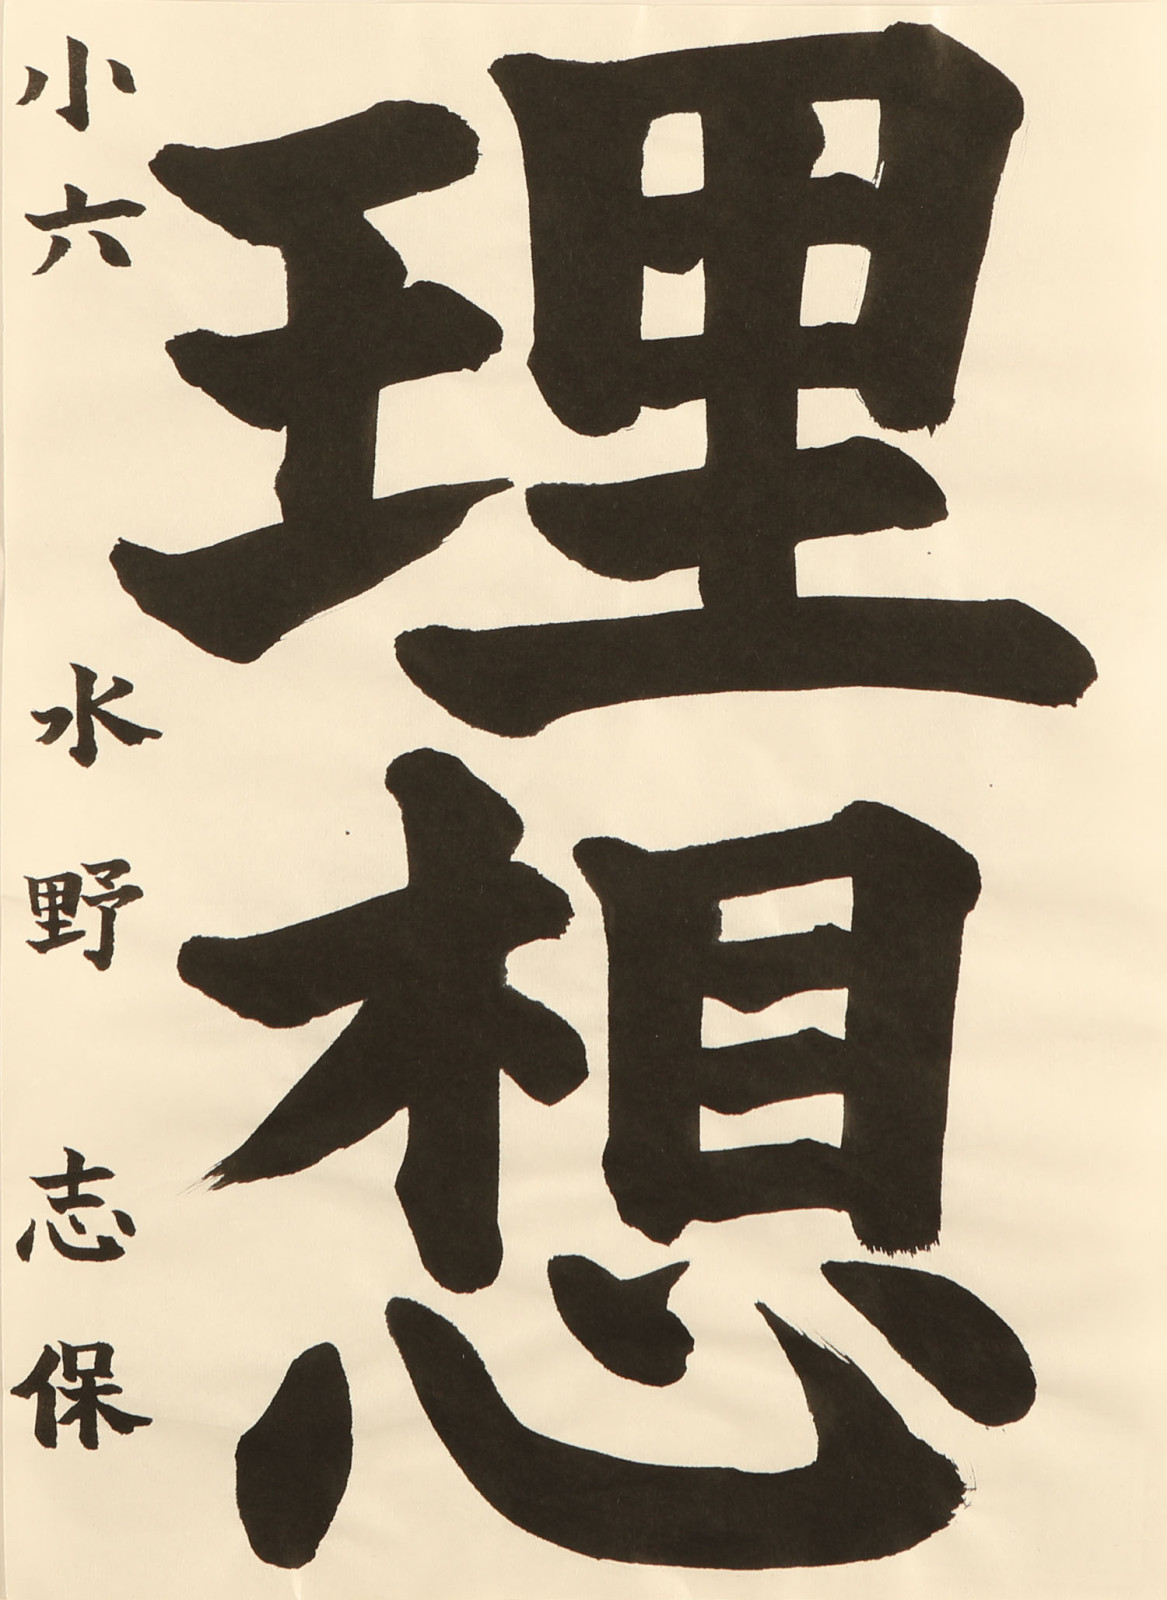 理想
小六 水野 志保